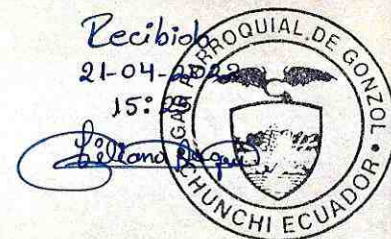 Recibido
21-04-2022
15:
GAD PARROQUIAL DE GONZOL
CHUNCHI ECUADOR